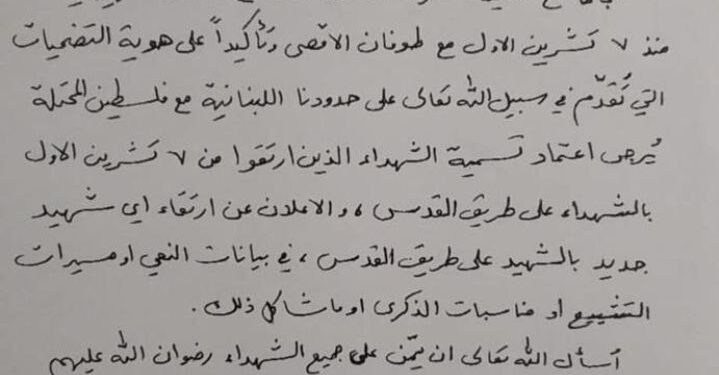 منذ ٧ تشرين الاول مع طوفان الاقصى وتأكيداً على هوية التضحيات
التي تُقدّم في سبيل الله تعالى على حدودنا اللبنانية مع فلسطين المحتلة
يُرجى اعتماد تسمية الشهداء الذين ارتقوا من ٧ تشرين الاول
بالشهداء على طريق القدس ، والاعلان عن ارتقاء اي شهيد
جديد بالشهيد على طريق القدس ، في بيانات النعي او مسيرات
التشييع او مناسبات الذكرى او ما شاكل ذلك .
أسأل الله تعالى ان يمّن على جميع الشهداء رضوان الله عليهم